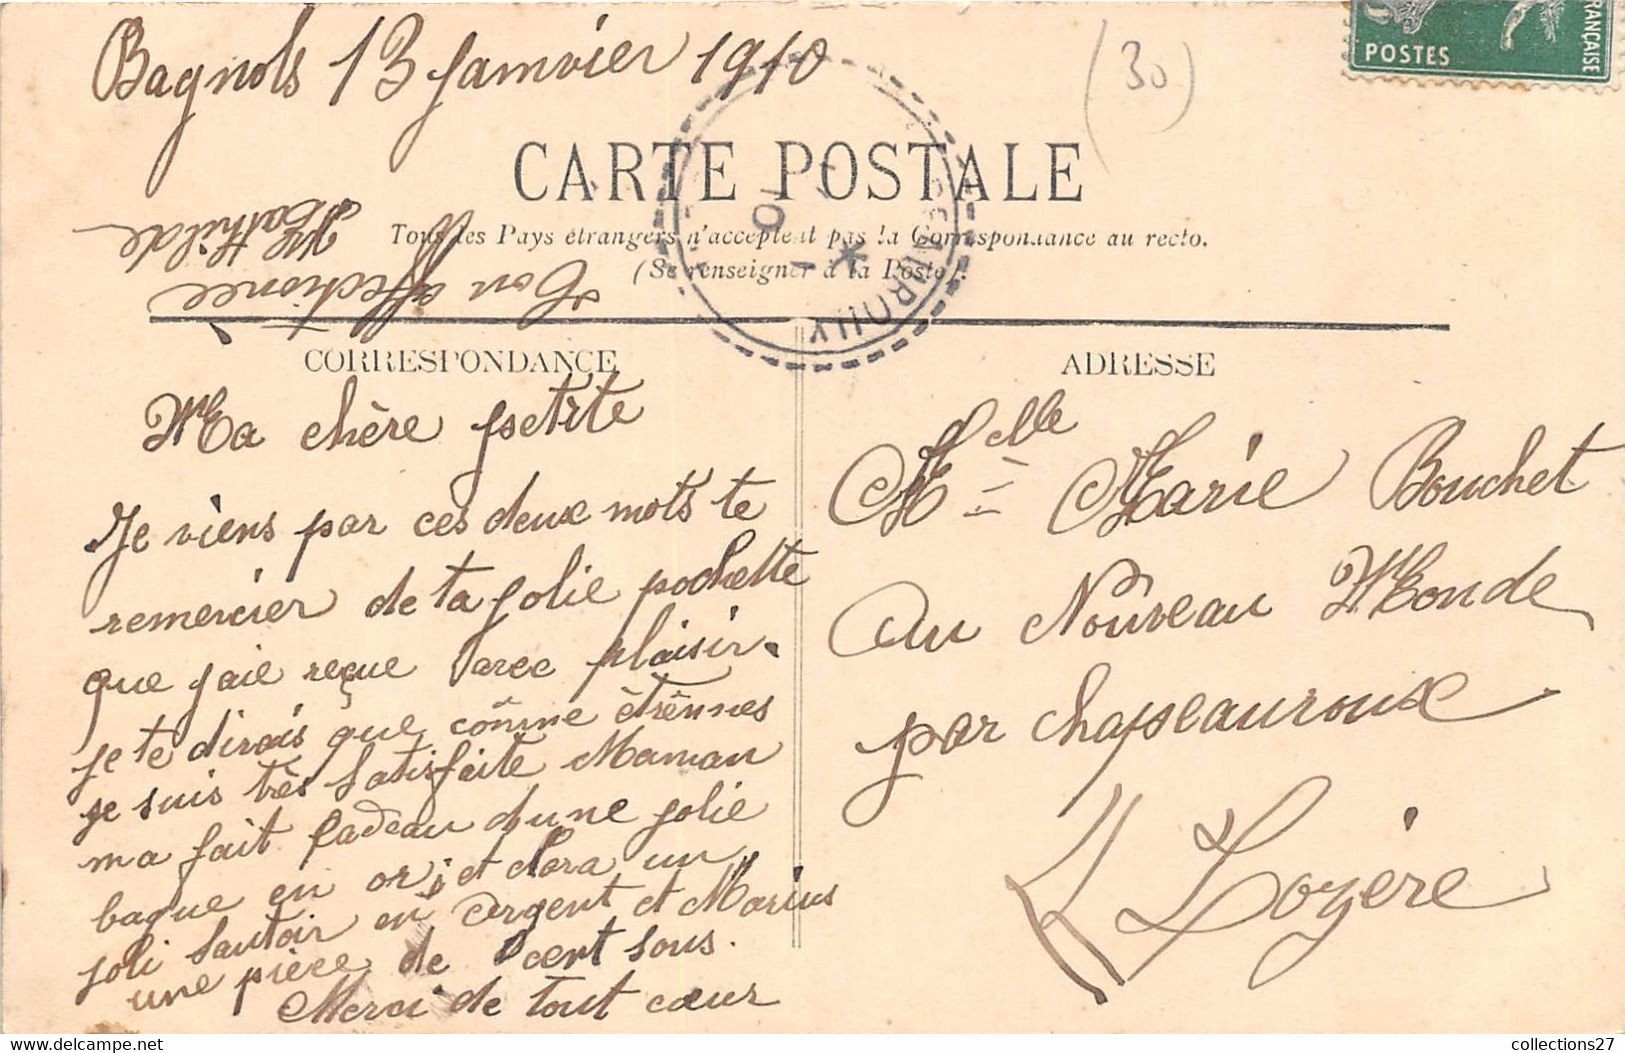 Bagnols 13 Janvier 1910
(30)
POSTES
FRANÇAISE
CARTE POSTALE
Tous les Pays étrangers n'acceptent pas la Correspondance au recto.
(Se renseigner à la Poste).
CORRESPONDANCE
ADRESSE
Ma chère petite
Je viens par ces deux mots te
remercier de ta jolie pochette
que jaie reçue avec plaisir.
je te dirais que comme étrennes
je suis très satisfaite Maman
ma fait cadeau dune jolie
bague en or; et Clara un
joli sautoir en Argent et Marius
une pièce de cent sous.
Merci de tout cœur
Ton affectionée
Mathilde
Melle Marie Bouchet
Au Nouveau Monde
par Chapeauroux
Lozère
collections27